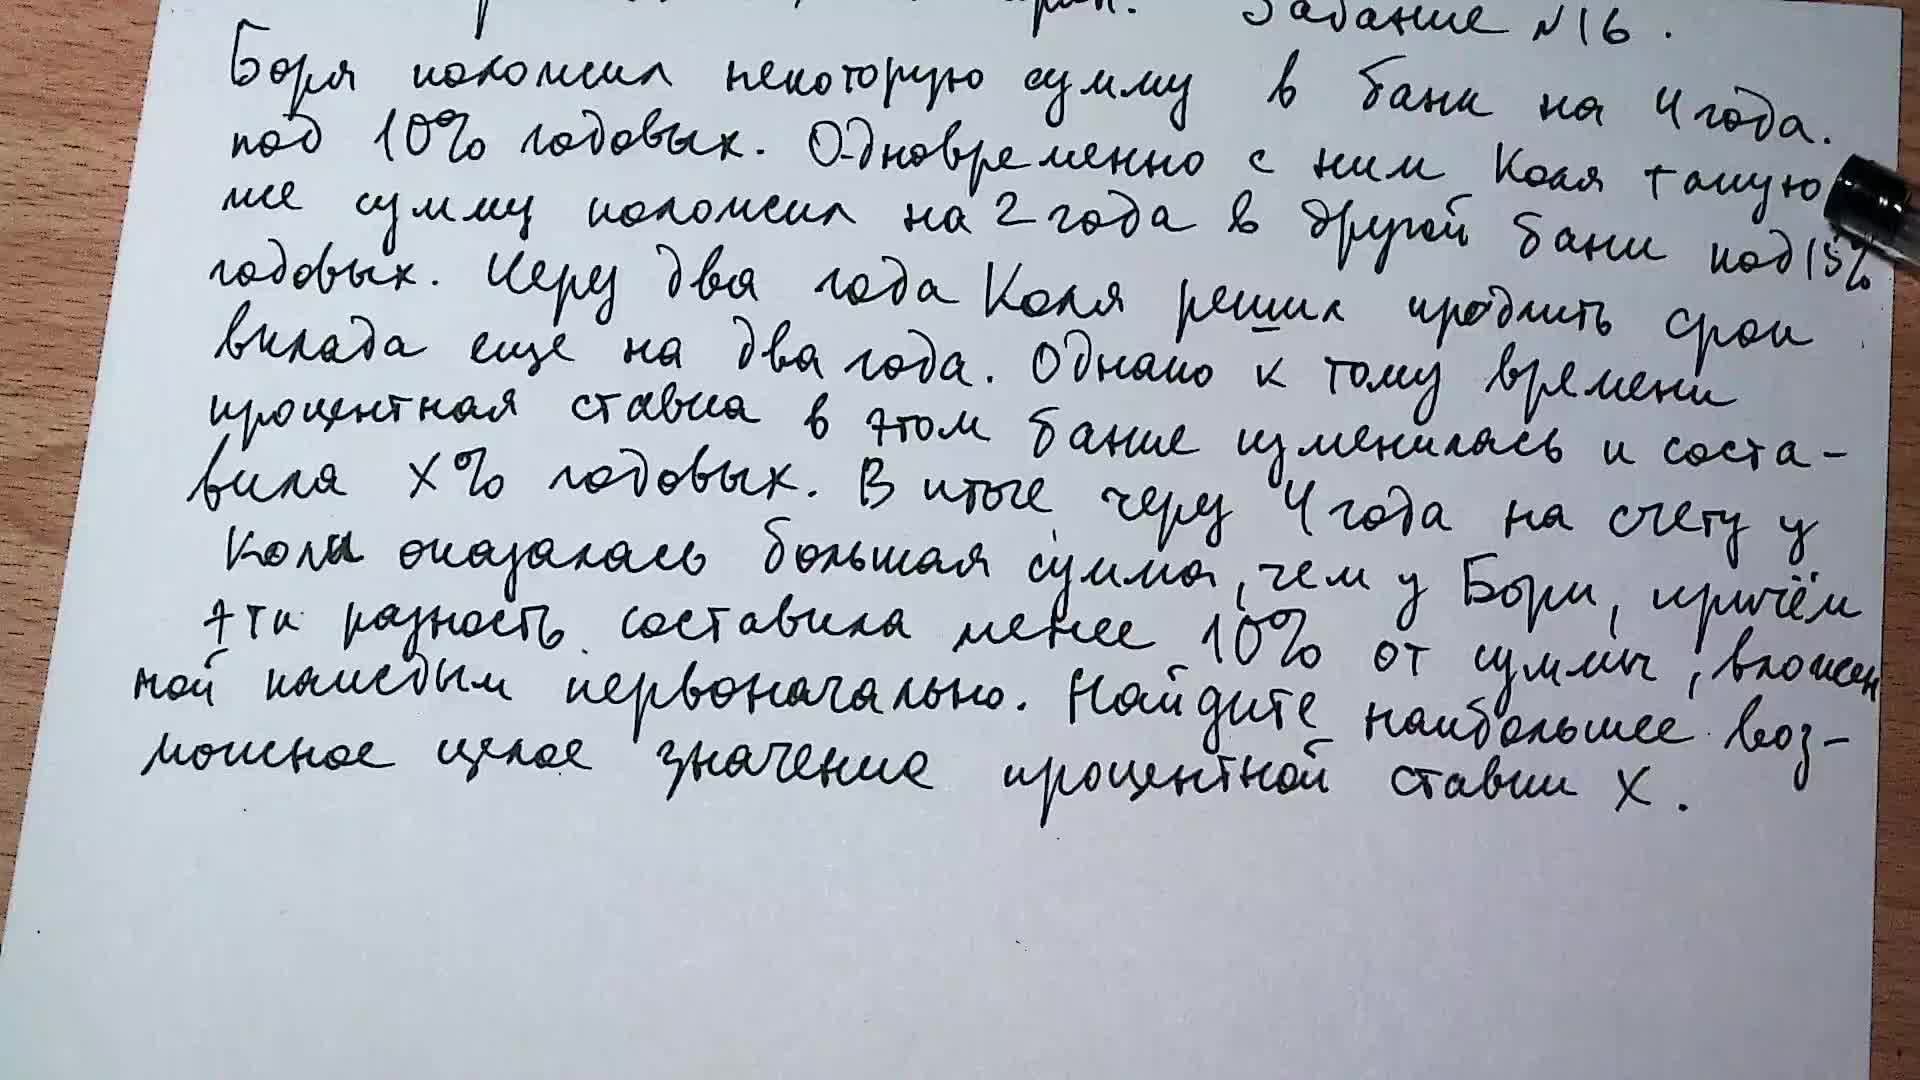 Задание №16.
Боря положил некоторую сумму в банк на 4 года.
под 10% годовых. Одновременно с ним Коля такую
же сумму положил на 2 года в другой банк под 15%
годовых. Через два года Коля решил продлить срок
вклада еще на два года. Однако к тому времени
процентная ставка в этом банке изменилась и соста-
вила x% годовых. В итоге через 4 года на счету у
Коли оказалась большая сумма, чем у Бори, причём
эта разность составила менее 10% от суммы, вложен
ной каждым первоначально. Найдите наибольшее воз-
можное целое значение процентной ставки x.